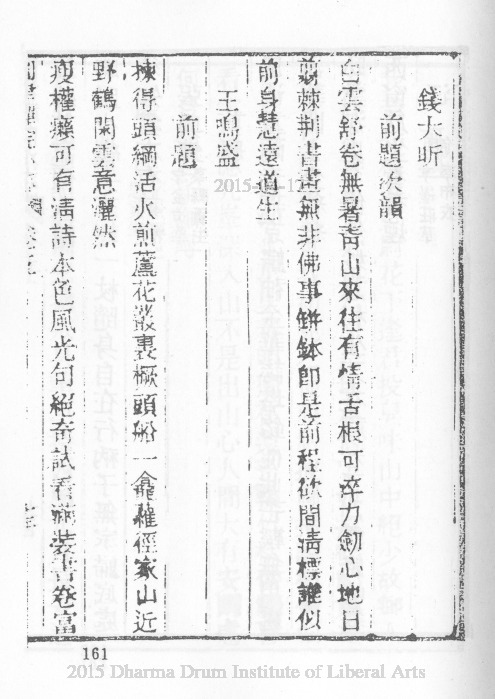 錢大昕
前題次韻
白雲舒卷無暑靑山來往有情舌根可淬力劒心地日
翦棘荆書畫無非佛事缾鉢卽是前程欲間淸標誰似
前身慧遠道生
王鳴盛
前題
揀得頭綱活火煎蘆花叢裏橛頭船一龕蘿徑家山近
野鶴閑雲意灑然
瘦權癩可有淸詩本色風光句絕奇試看滿裝書卷富
161
2015 Dharma Drum Institute of Liberal Arts